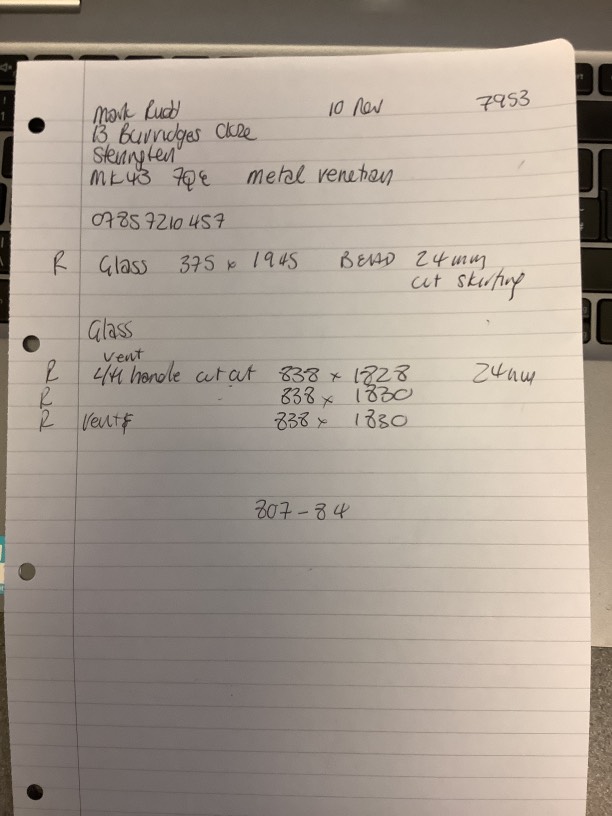 Mark Rudd 10 Nov 7953
13 Burridges Close
Stevington
MK43 7QE metal venetian
07857210457
R Glass 375 x 1945 BEAD 24mm
cut skirting
Glass
vent
R L/H handle cut out 838 x 1828 24mm
R 838 x 1830
R Vent 838 x 1830
807-84